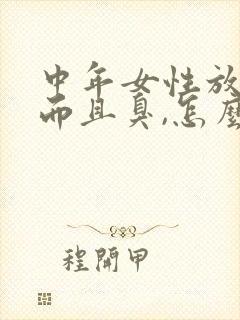 中年女性放
而且臭,怎麼
程開甲